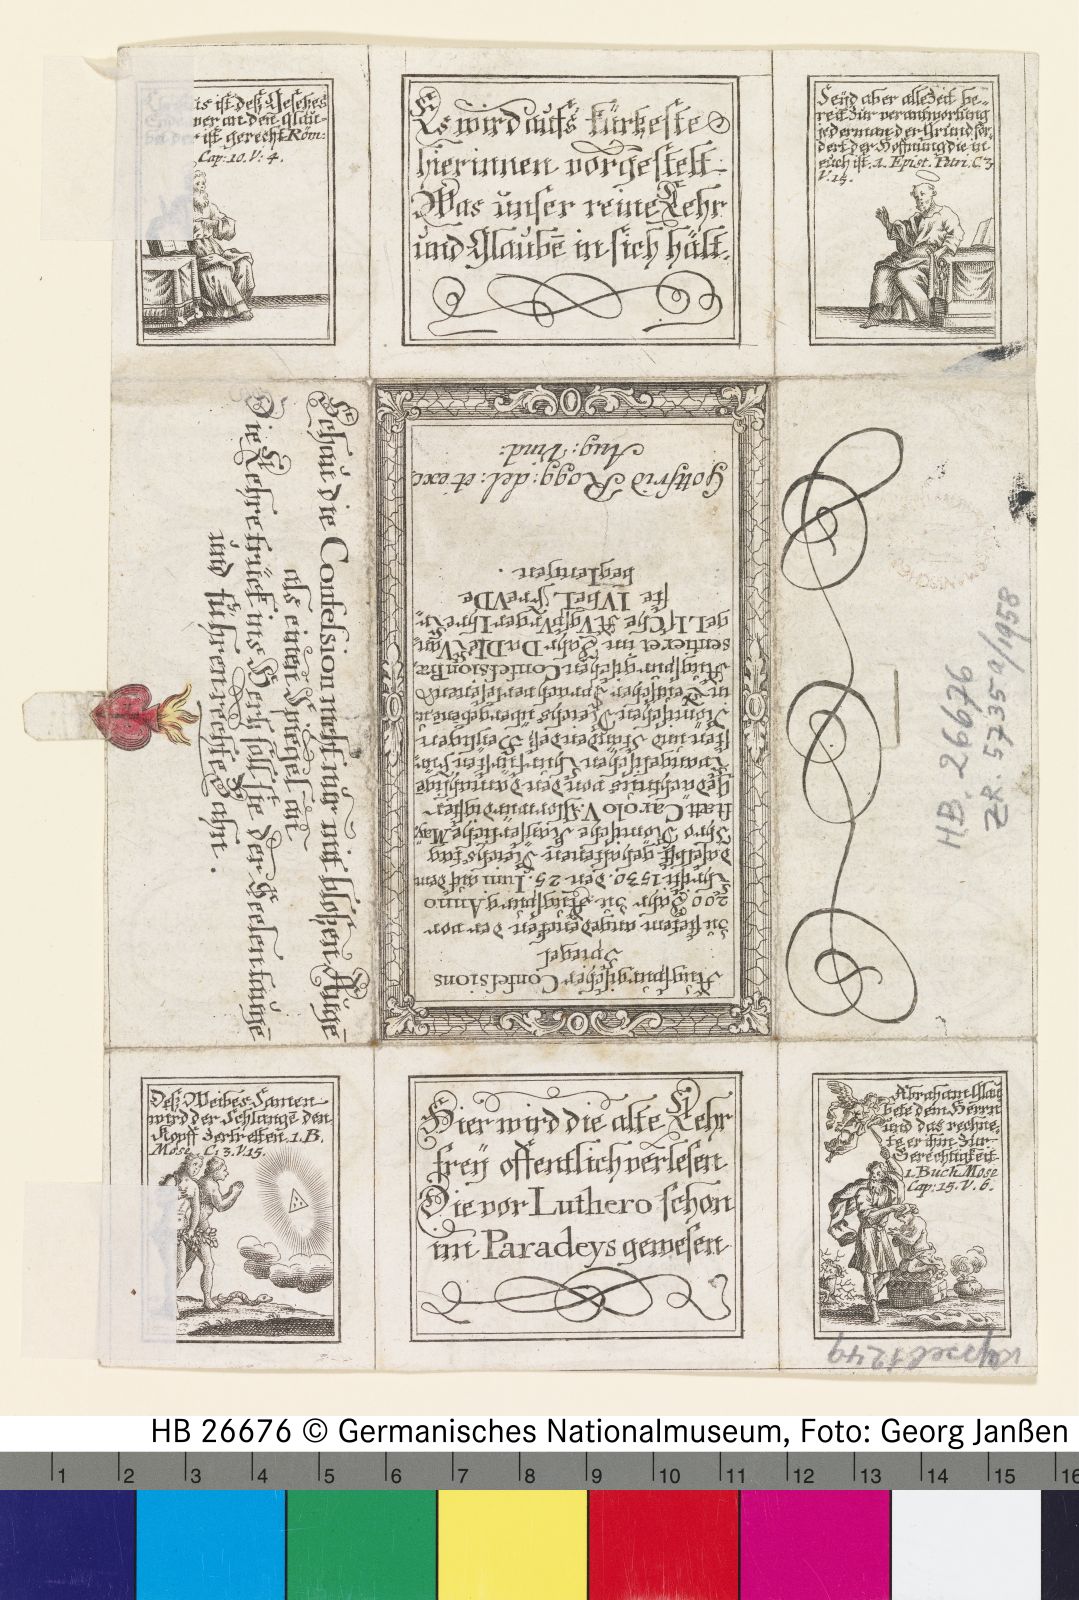 is ist deß Gesetzes
ner an den glau-
ist gerecht Röm:
Cap: 10. V: 4.
Es wird aufs kürtzeste
hierinnen vorgestelt
Was unser reine Lehr
und Glaube in sich hält.
Seyd aber allezeit be-
reit zur verantwortung
jederman der Grund for-
dert der Hoffnung die in
euch ist. 1. Epist. Petri. C. 3
V. 15.
Schau die Confession nicht nur mit bloßen Auge
als einen Spiegel an
Die Lehre trück ins Hertz soll sie der Seelen tauge
und führen rechte Bahn.
Augspurgischer Confessions
Spiegel
zu stetem angedencken der vor
200 Jahr zu Augspurg Anno
Christi 1530. den 25. Iunii auf dem
daselbst gehaltenen Reichstag
Ihro Römische Kayserliche May
statt Carolo V. Glorwürdigster
Gedächtnis von den damahlige
Evangelischen Churfürsten Für-
sten und Ständen deß Heyligen
Römischen Reichs übergebenen
in Teutscher Sprach verlesenen
Augspurgischen Confession Præ
sentieret im Jahr Da DIe EVan
geLIsChe AVgspVrger Ihre Er
ste IVbeL FreVDe
begiengen.
Gottfrid Rogg: del: et exc.
Aug: Vind:
HB. 26676
ZR. 5735a/1958
Deß Weibes Samen
wird der Schlange den
Kopff zertretten. 1. B.
Mose. C. 3. V. 15.
Hier wird die alte Lehr
frey offentlich verlesen
Die vor Luthero schon
im Paradeys gewesen
Abraham Glau
bete dem Herrn
und das rechne-
te er ihm zur
Gerechtigkeit
1. Buch Mose
Cap: 15. V. 6.
Kapsel 1249
HB 26676 © Germanisches Nationalmuseum, Foto: Georg Janßen
1 2 3 4 5 6 7 8 9 10 11 12 13 14 15 16